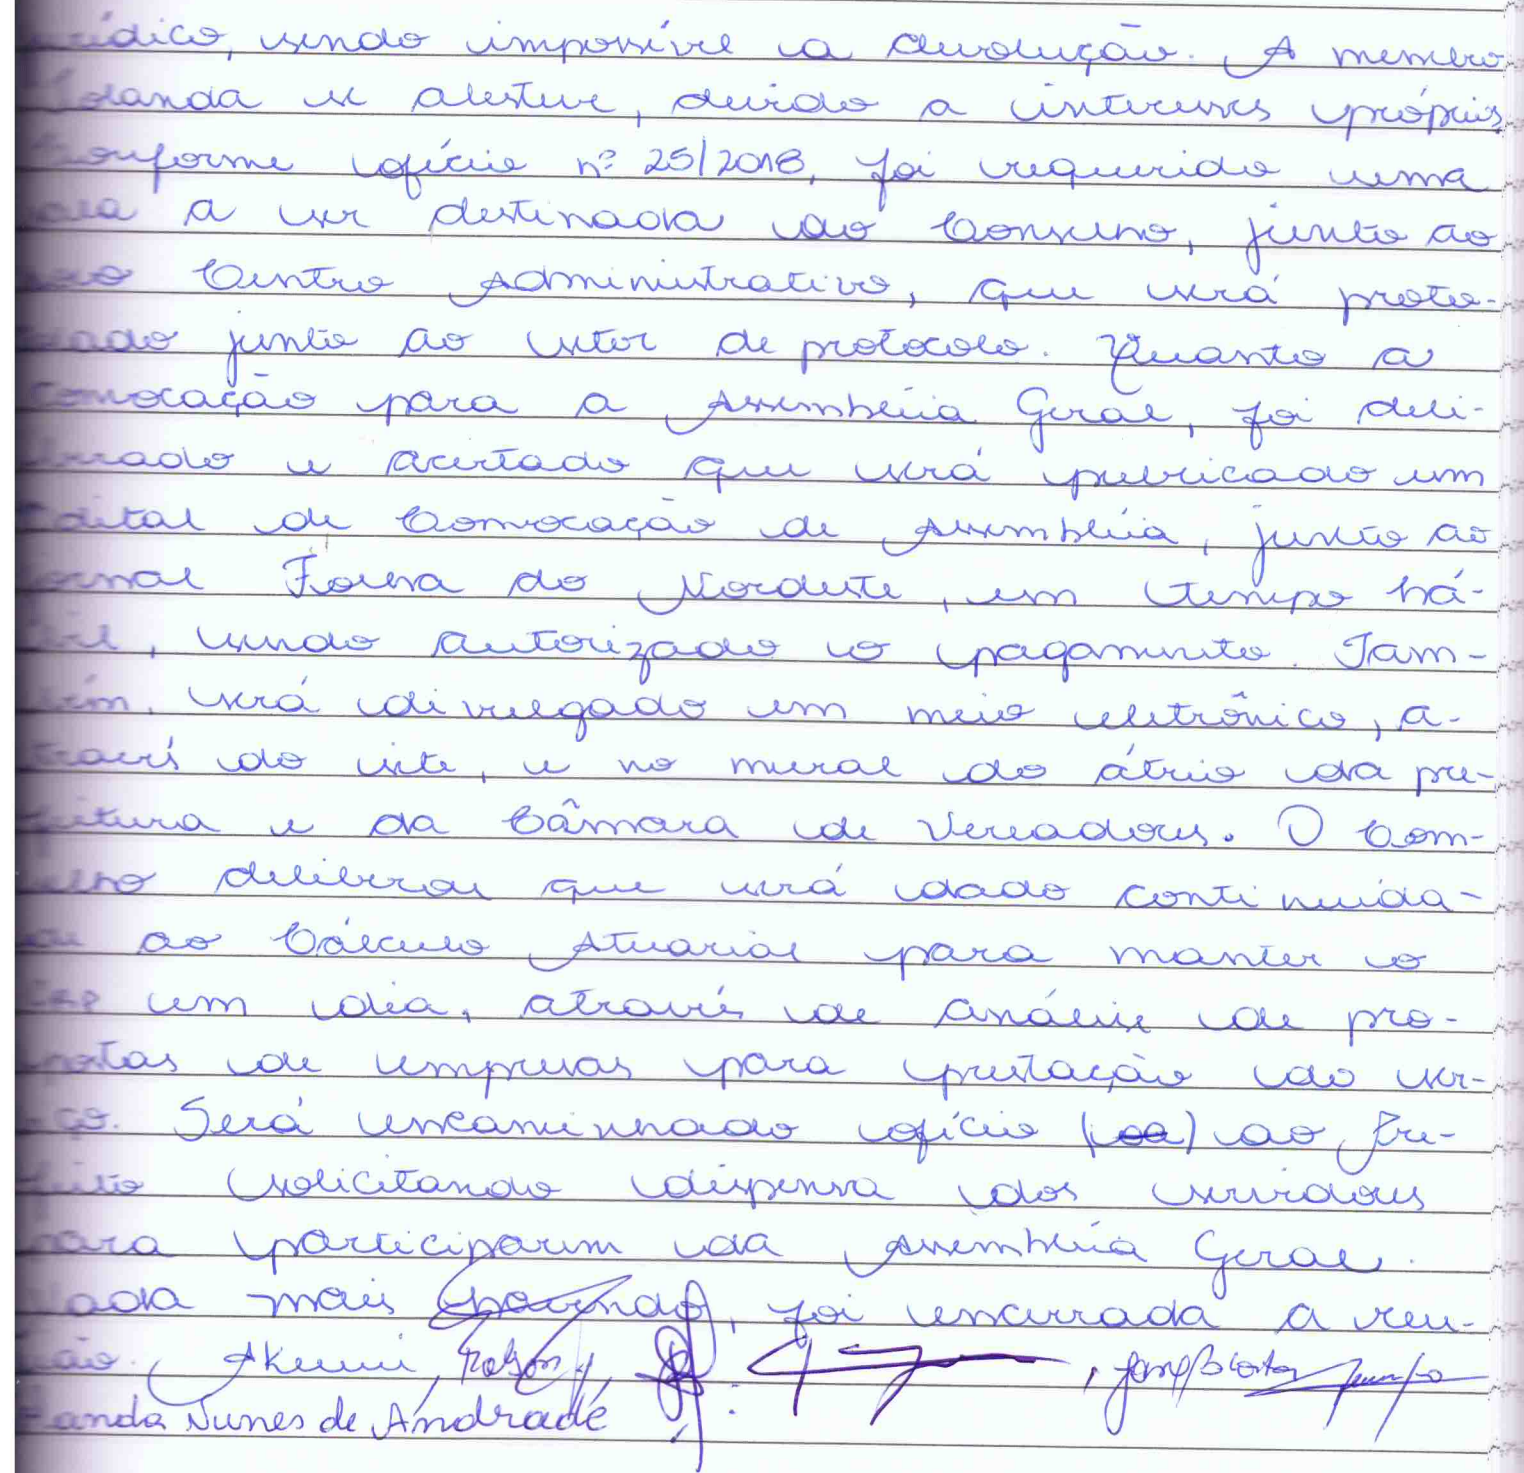 jurídico, sendo impossível a devolução. A membro
Iolanda se absteve, devido a interesses próprios.
Conforme ofício nº 25/2018, foi requerido uma
sala a ser destinada ao Conselho, junto ao
novo Centro Administrativo, que será proto-
colado junto ao setor de protocolo. Quanto a
convocação para a Assembléia Geral, foi deli-
berado e acertado que será publicado um
Edital de Convocação de Assembléia, junto ao
Jornal Folha do Nordeste, em tempo há-
bil, sendo autorizado o pagamento. Tam-
bém, será divulgado em meio eletrônico, a-
través do site, e no mural do átrio da pre-
feitura e da Câmara de Vereadores. O Con-
selho deliberou que será dado continuida-
de ao Cálculo Atuarial para manter o
em dia, através de análise de pro-
postas de empresas para prestação do ser-
viço. Será encaminhado ofício ao Pre-
feito solicitando dispensa dos servidores
para participarem da Assembléia Geral.
Nada mais havendo, foi encerrada a reu-
nião. Akemi,
Nunes de Andrade